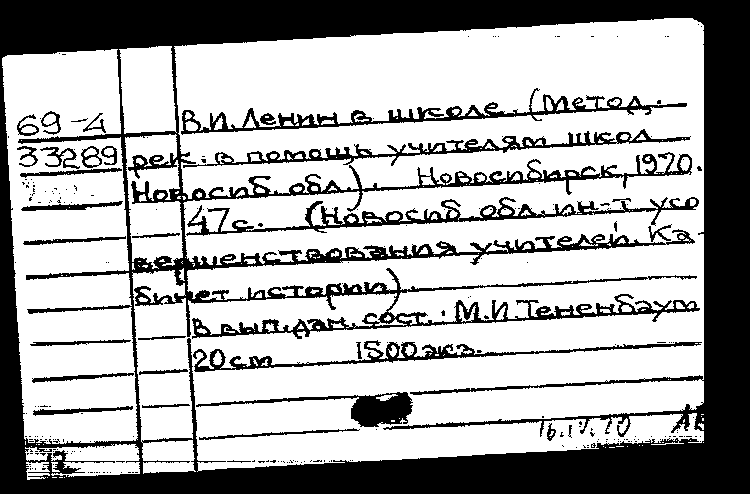 69-4 В.И.Ленин в школе. (Метод.
33289 рек. в помощь учителям школ
Новосиб. обл.). Новосибирск, 1970.
47с. (Новосиб. обл. ин-т усо
вершенствования учителей. Ка-
бинет истории).
В вып.дан. сост.: М.И Тененбаум
20см 1500экз.
16.IV.70 АВ
12